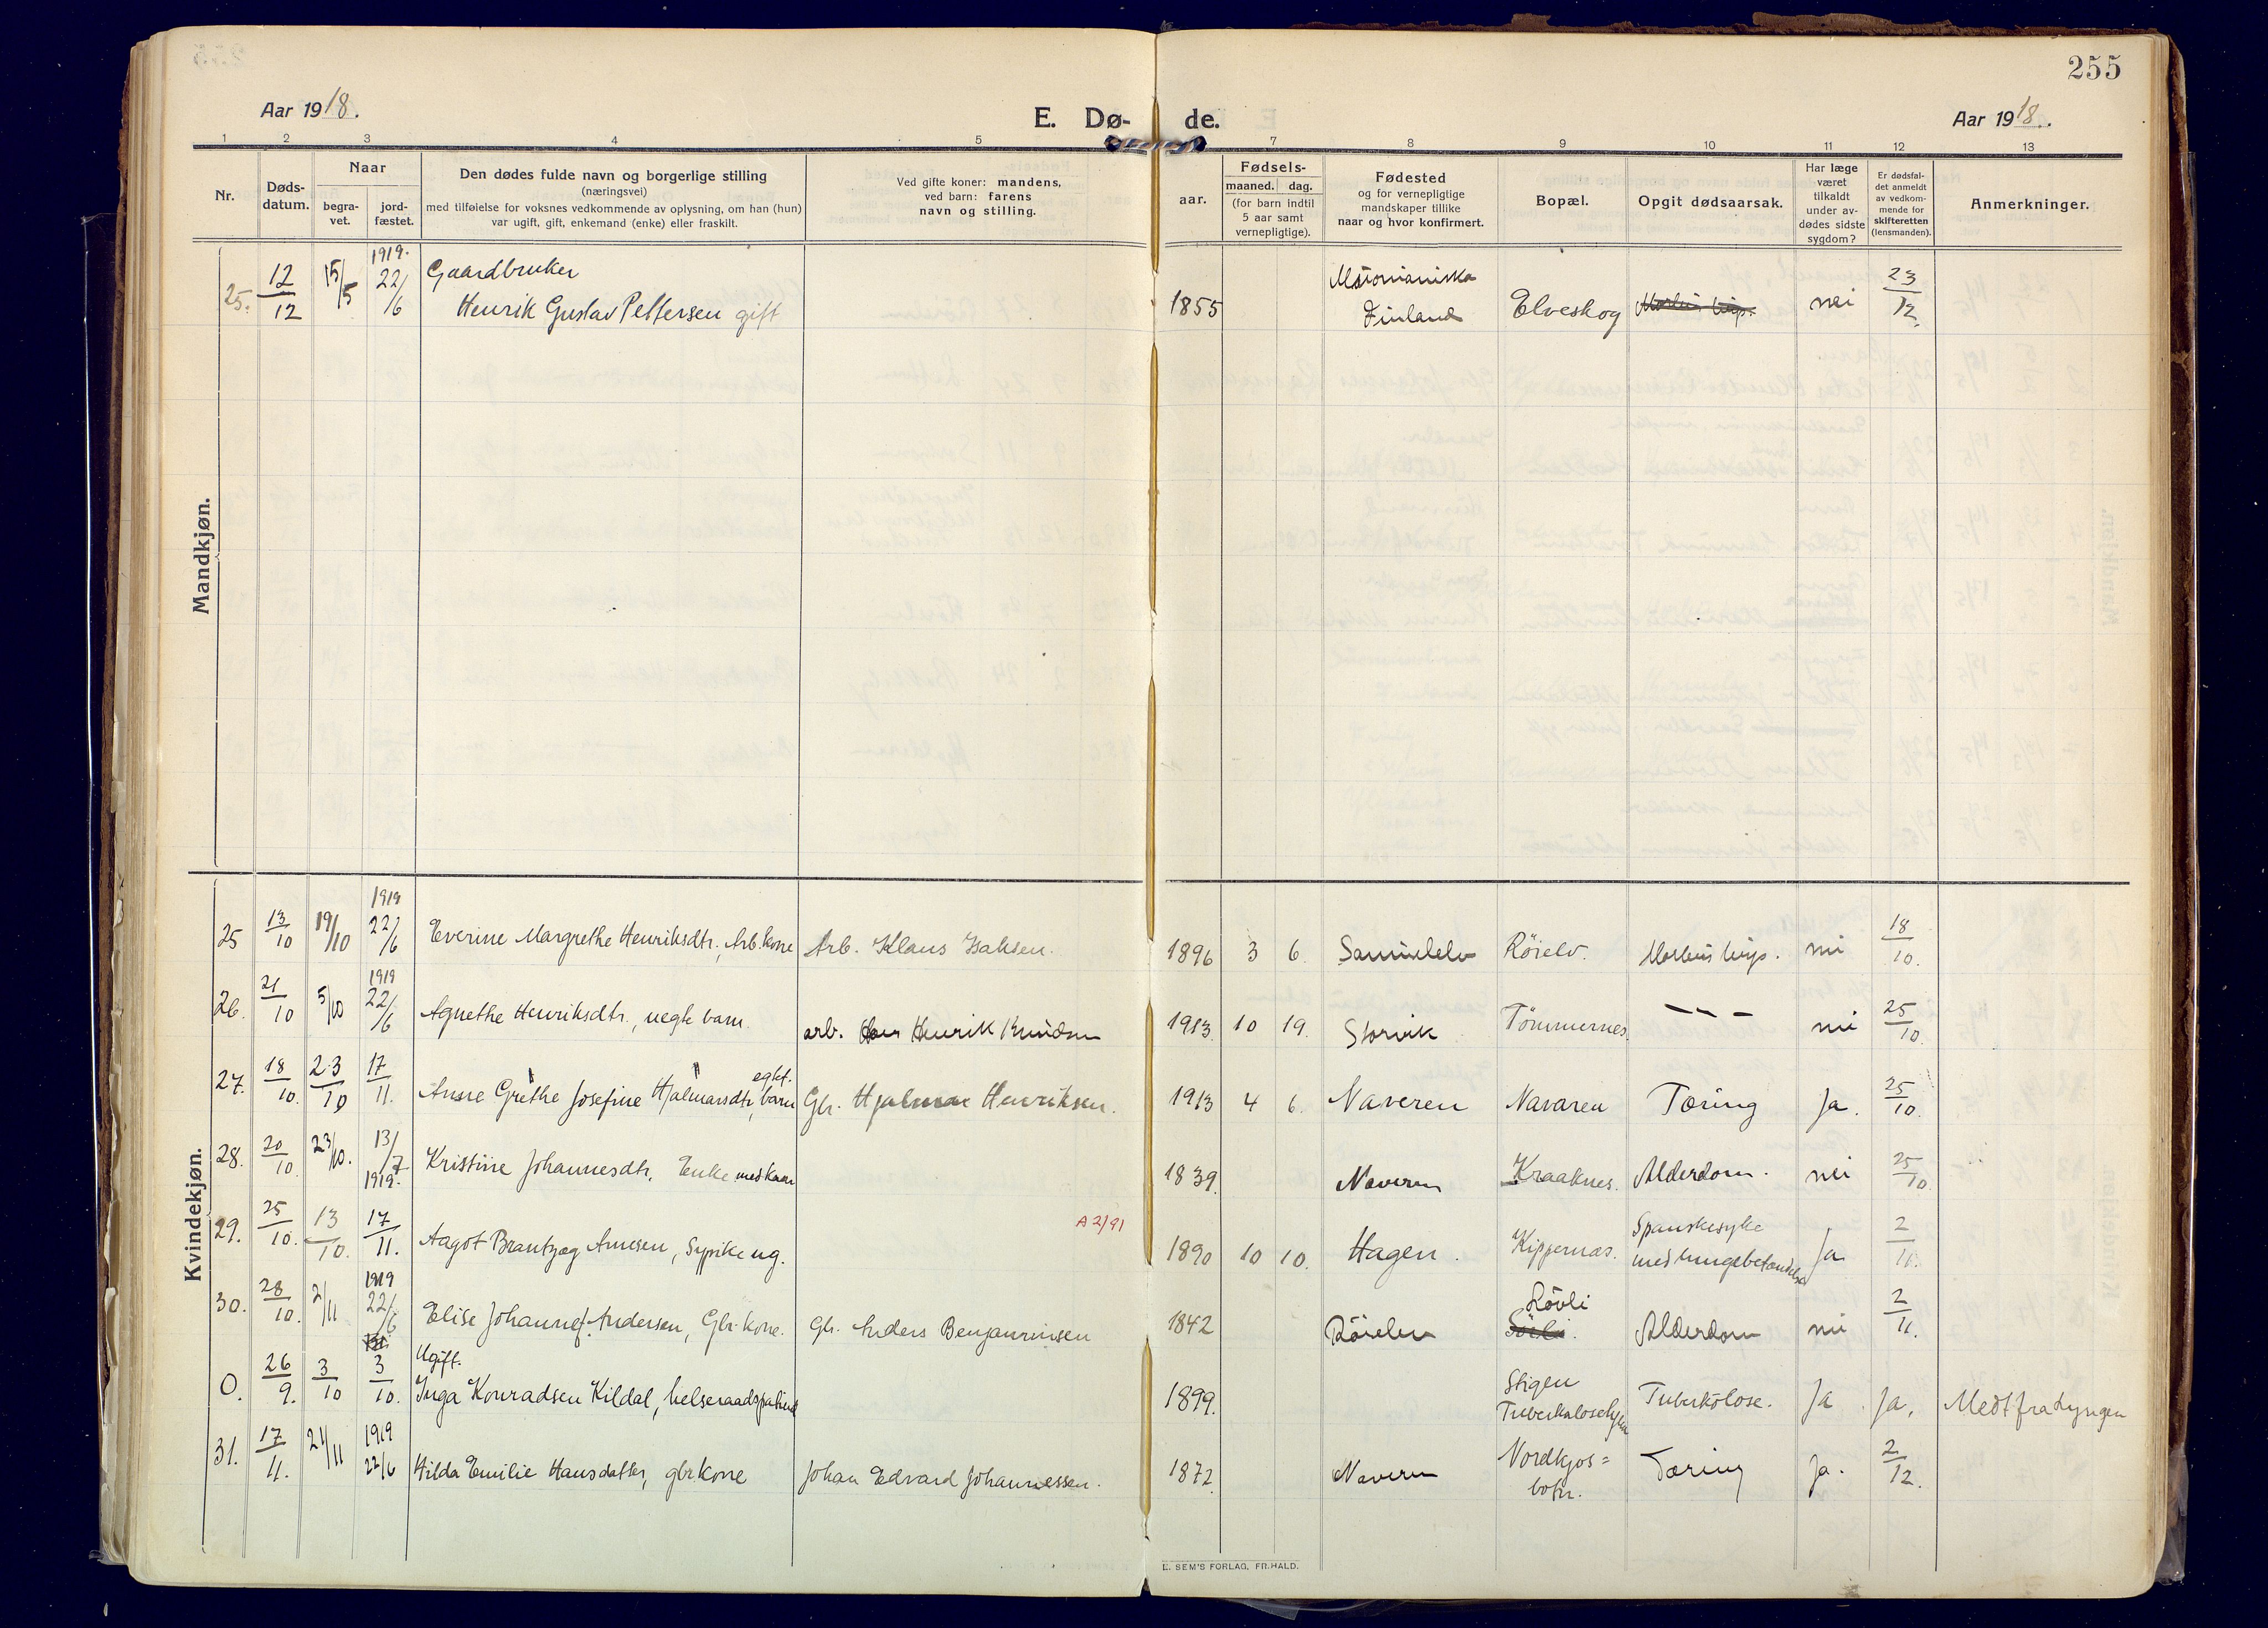 255
Aar 1918.
E. Dø-de.
Aar 1918.
1 2 3 4 5 7 8 9 10 11 12 13
Nr.
Døds-datum.
Naar
begra-vet.
jord-fæstet.
Den dødes fulde navn og borgerlige stilling
(næringsvei)
med tilføielse for voksnes vedkommende av oplysning, om han (hun)
var ugift, gift, enkemand (enke) eller fraskilt.
Ved gifte koner: mandens,
ved barn: farens
navn og stilling.
aar.
Fødsels-
maaned. dag.
(for barn indtil
5 aar samt
vernepligtige).
Fødested
og for vernepligtige
mandskaper tillike
naar og hvor konfirmert.
Bopæl.
Opgit dødsaarsak.
Har læge
været
tilkaldt
under av-
dødes sidste
sygdom?
Er dødsfal-
det anmeldt
av vedkom-
mende for
skifteretten
(lensmanden).
Anmerkninger.
Mandkjøn.
25. 12/12 15/5 1919. 22/6 Gaardbruker
Henrik Gustav Pettersen gift 1855 Finland Elveskog nei 23/12.
Kvindekjøn.
25 13/10 19/10 1919 22/6 Everine Margrethe Henriksdtr., Arb.kone Arb. Klaus Isaksen. 1896 3 6. Samuelelv Röielv. nei 18/10.
26. 21/10 5/10 1919 22/6 Agnethe Henriksdtr., uegte barn arb. Hans Henrik Knudsen 1913 10 19. Storvik Tömmernes. — — — nei 25/10.
27. 18/10. 23/10 17/11. Anne Grethe Josefine Hjalmarsdtr, egkt. barn Gbr. Hjalmar Henriksen. 1913 4 6. Naveren Navaren Tæring Ja. 25/10.
28. 20/10. 23/10. 13/7 1919. Kristine Johannesdtr, Enke 1839. Naveren Kraaknes. Alderdom. nei 25/10
29. 25/10. 13/10. 17/11. Aagot Brantzæg Arnesen, Sypike ug. A 2/91 1890 10 10. Hagen. Kippernæs. Spanskesyke
med lungebetændelse Ja 2/11.
30. 28/10. 2/11 1919 22/6 Elise Johannesd. Andersen, Gbr. kone. Gbr. Anders Benjaminsen 1842 Röielv Lövli
Alderdom nei 2/11.
0. 26/9. 3/10 3/10. Ugift.
Inga Konradsen Kildal, helseraadspatient 1899. Stigen
Tuberkulosehjem Tuberkolose. Ja Ja, Medt fra Lyngen
31. 17/11. 21/11 1919 22/6 Hilda Emilie Hansdatter, gbr. kone Johan Edvard Johannessen. 1872. Naveren Nordkjos=
botn. Tæring Ja. 2/12.
E. SEM'S FORLAG, FR.HALD.